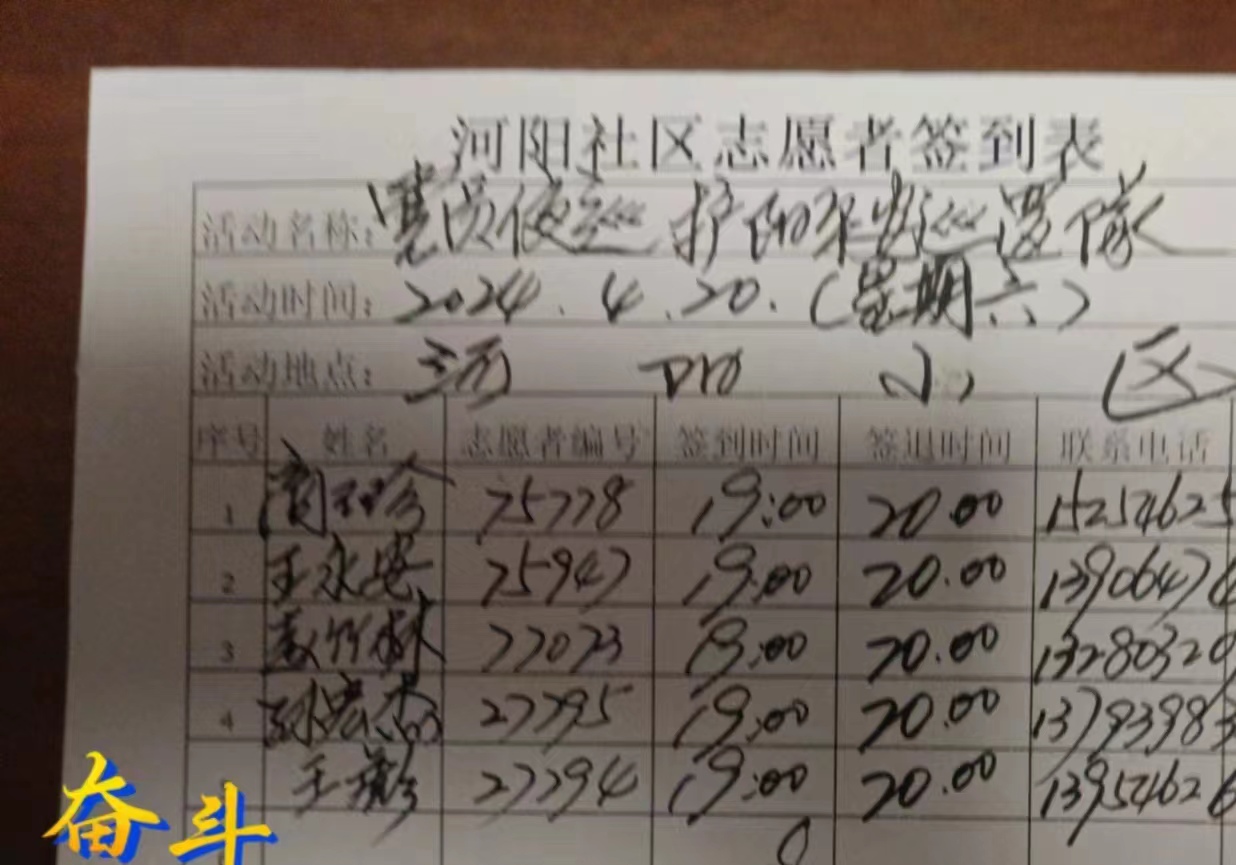 河阳社区志愿者签到表
活动名称:党员夜巡
活动时间:2024.4.20.(星期六)
活动地点:河阳小区
序号 姓名 志愿者编号 签到时间 签退时间 联系电话
1 75778 19:00 20.00 15254625
2 王永 75947 19:00 20.00 13906476
3 77073 19:00 20.00 13280320
4 27795 19:00 20.00 13793983
王 27794 19:00 20.00 13954626
奋斗